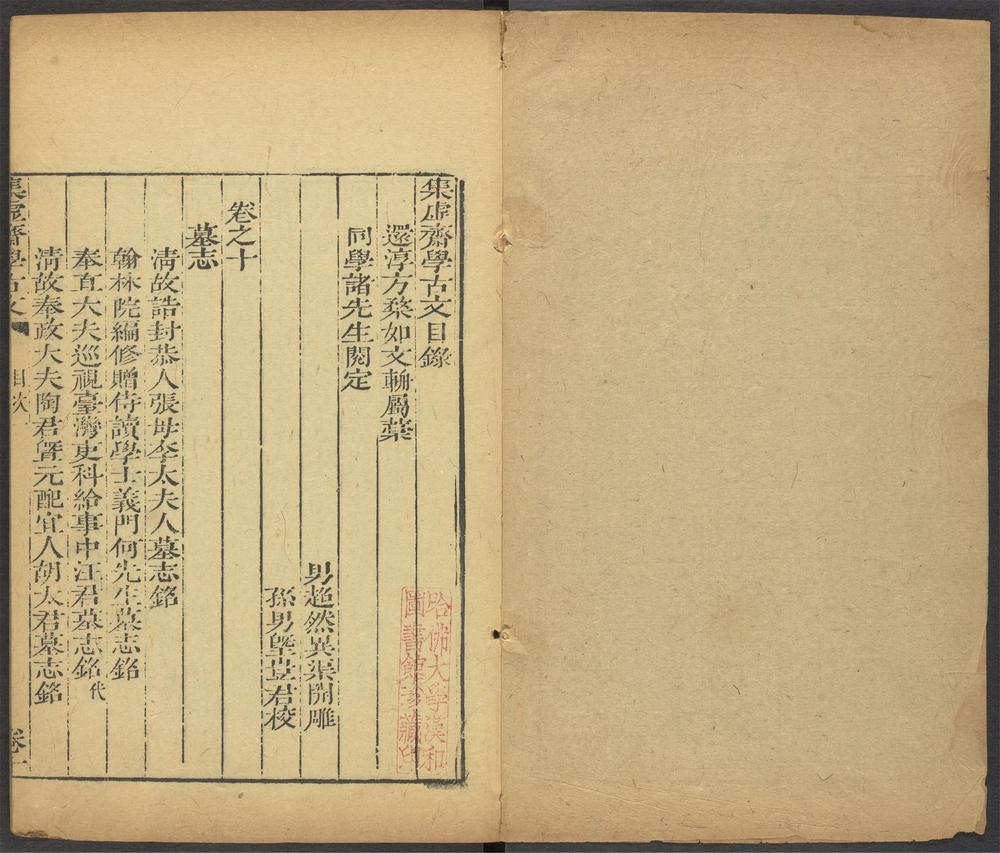 集虛齋學古文目錄
還淳方楘如文輈屬藁
同學諸先生閱定
男超然異渠開雕
孫男塈荁君校
卷之十
墓志
清故誥封恭人張母李太夫人墓志銘
翰林院編修贈侍讀學士義門何先生墓志銘
奉直大夫巡視臺灣吏科給事中汪君墓志銘代
清故奉政大夫陶君曁元配宜人胡太君墓志銘
集虛齋學古文 目次 卷十
哈佛大學漢和
圖書館珍藏印